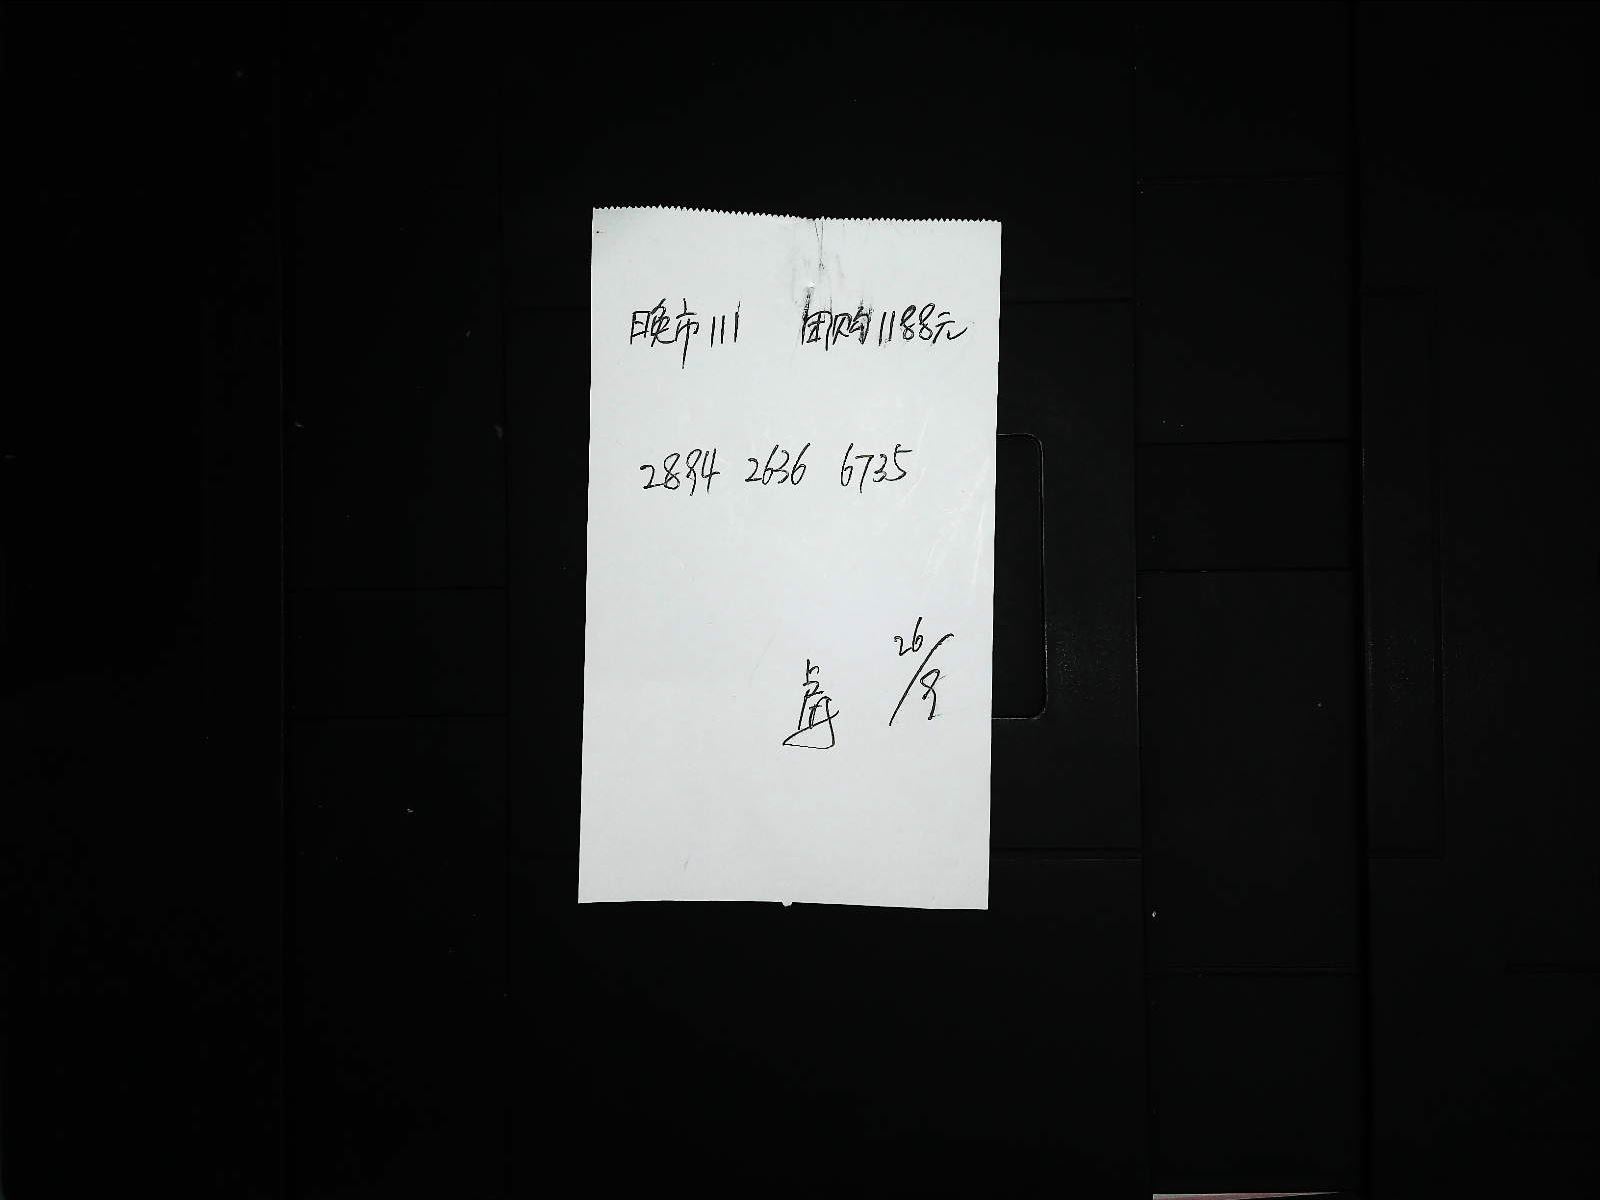 晚市111 团购1188元
2894 2636 6735
26/8